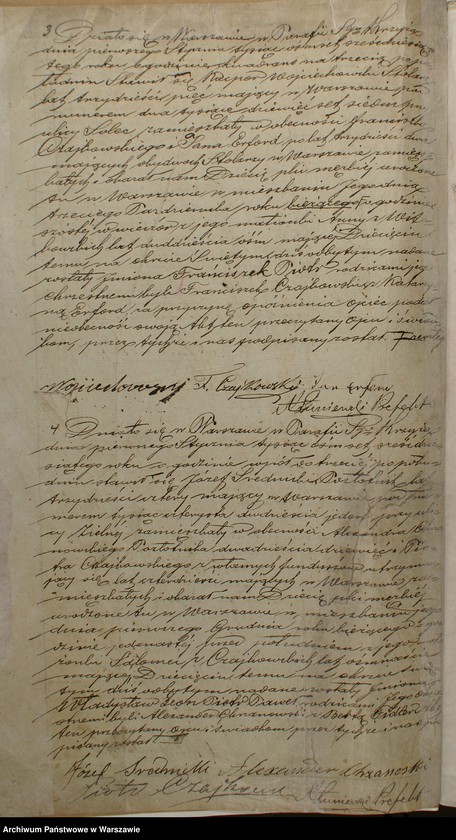 3 Działo się w Warszawie w Parafii Sgo Krzyża
dnia pierwszego Stycznia tysiąc ośmset sześćdziesią
tego roku o godzinie na trzecią po po
łudniu Stawił się Wojciechowski Stolarz
lat trzydzieści pięć mający w Warszawie pod
numerem dwa tysiące dziewięć set siedem przy
ulicy Solec zamieszkały w obecności Franciszka
Czajkowskiego i Jana Erford po lat trzydzieści dwa
mających, obydwóch Stolarzy w Warszawie zamiesz
kałych i okazał nam Dziecię płci męskiej urodzone
tu w Warszawie w mieszkaniu jego dnia
trzeciego Października roku bieżącego o godzinie
szóstej wieczór z jego małżonki Anny z
lat dwadzieścia ośm mającej Dziecięciu
temu na chrzcie Świętym dziś odbytym nadane
zostały imiona Franciszek Piotr rodzicami jego
chrzestnemi byli Franciszek Czajkowski i Katarzy
na Erford, za przyczynę opóźnienia Ojciec podał
nieobecność swoją Akt ten przeczytany Ojcu i świad
kom, przez tychże i nas podpisany został.
F. Czajkowski Jan Erford
Prefekt
4 Działo się w Warszawie w Parafii Sgo Krzyża
dnia pierwszego Stycznia tysiąc ośm set sześćdzie
siątego roku o godzinie wpół do trzeciej po połu
dniu stawił się Józef Średnicki Pozłotnik lat
trzydzieści cztery mający w Warszawie pod nu
merem tysiąc czterysta dwadzieścia jeden przy uli
cy Zielnej zamieszkały w obecności Alexandra Chrza
nowskiego Pozłotnika dwadzieścia dziewięć i Pio
tra Czajkowskiego z własnych funduszów utrzymu
jący się lat czterdzieści mających w Warszawie za
mieszkałych i okazał nam Dziecię płci męskiej
urodzone tu w Warszawie w mieszkaniu jego
dnia pierwszego Grudnia roku bieżącego o go
dzinie jedenastej przed południem z jego mał
żonki Salomei z Czajkowskich lat ośmnaście
mającej Dziecięciu temu na chrzcie Świę
tym dziś odbytym nadane zostały imiona
Władysław Leon Piotr Paweł rodzicami jego chrze
stnemi byli Alexander Chrzanowski i Berta Akt
ten przeczytany ojcu i świadkom przez tychże i nas pod
pisany został
Józef Średnicki Alexander Chrzanoski
Piotr Prefekt
Archiwum Państwowe w Warszawie